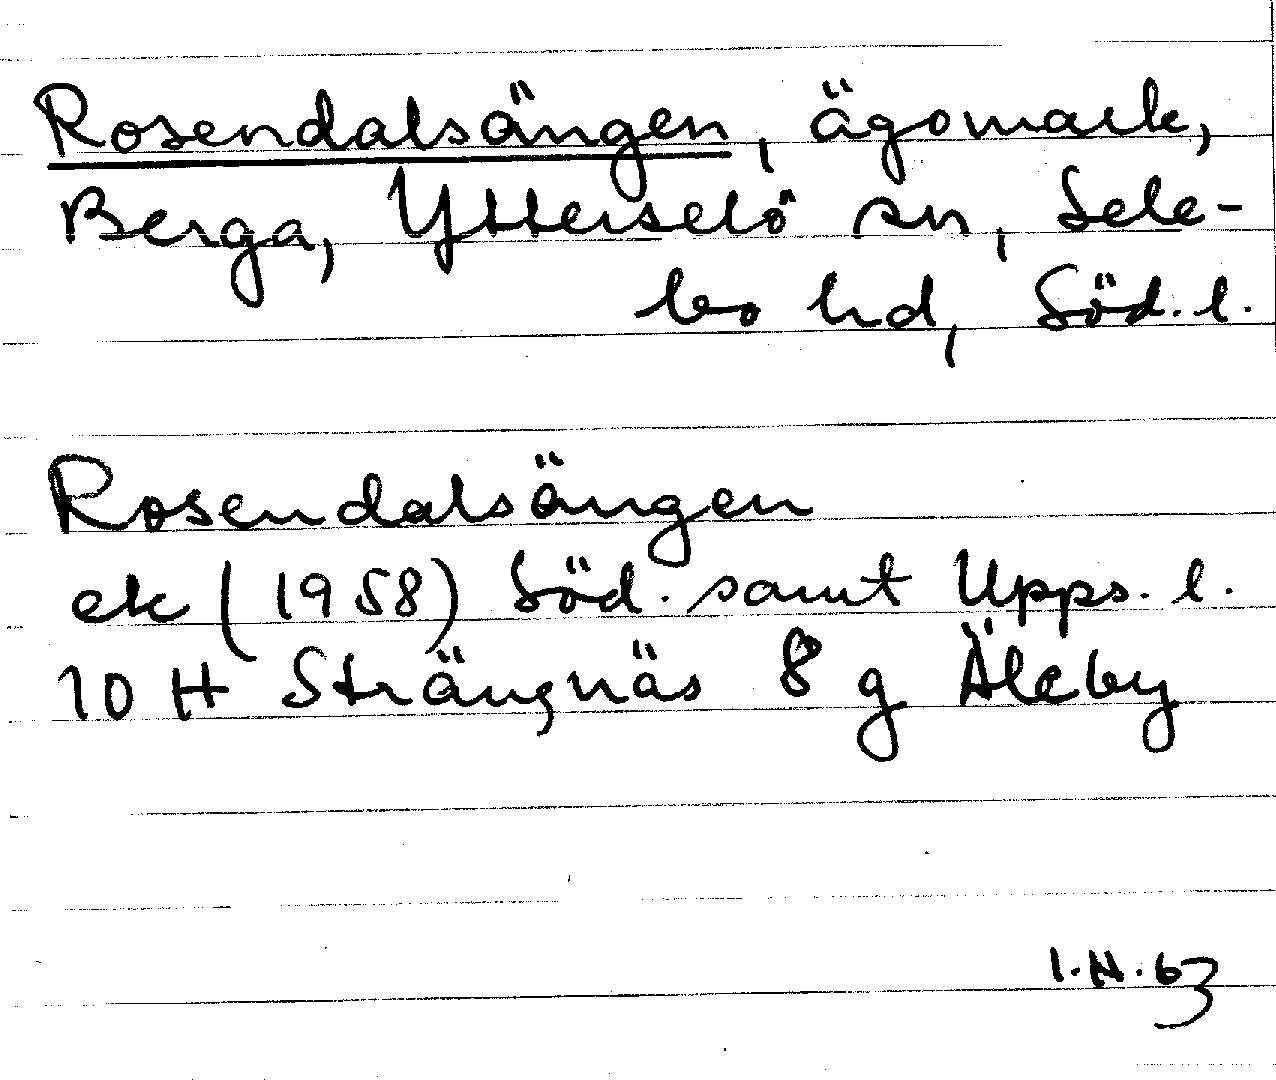 Rosendalsängen, ägomark,
Berga, Ytterselö sn, Sele-
bo hd, Söd. l.
Rosendalsängen
ek (1958) Söd. samt Upps. l.
10 H Strängnäs 8 g Äleby
I.N. 63